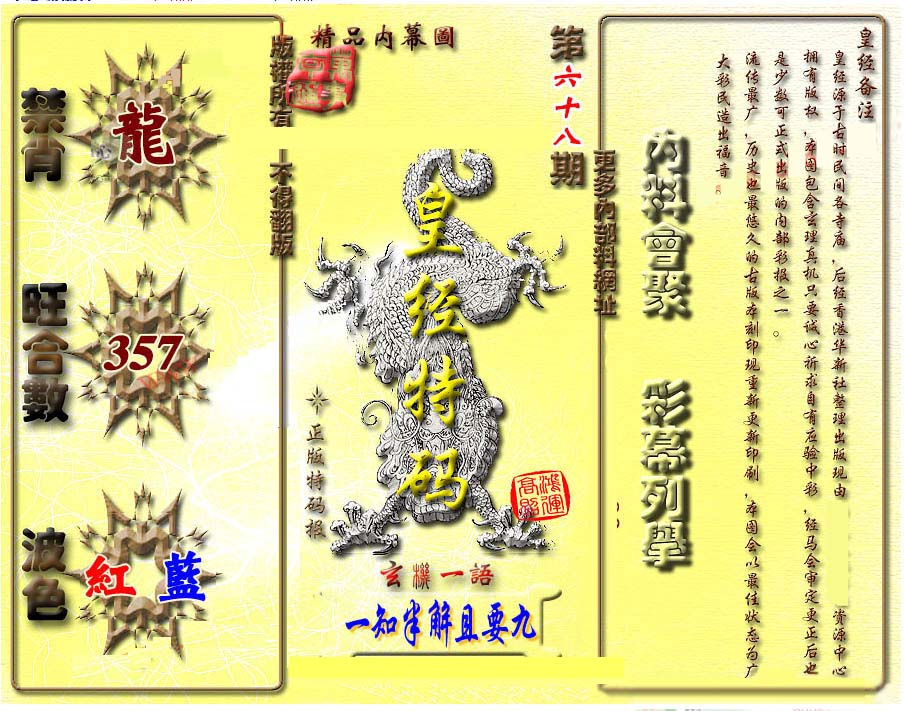 精品內幕圖
第六十八期
版權所有
不得翻版
禁肖
龍
旺合數
357
波色
紅 藍
皇经特码
正版特码报
鴻運高照
玄機一語
一知半解且要九
更多內部料網址
內料會聚
彩幕列學
皇经备注
皇经源于古时民间各寺庙,后经香港华新社整理出版现由 资源中心
拥有版权,本图包含玄理真机只要诚心祈求自有应验中彩,经马会审定更正后也
是少数可正式出版的内部彩报之一。
流传最广,历史也最悠久的古版本刻印现重新更新印刷,本图会以最佳状态为广
大彩民造出福音